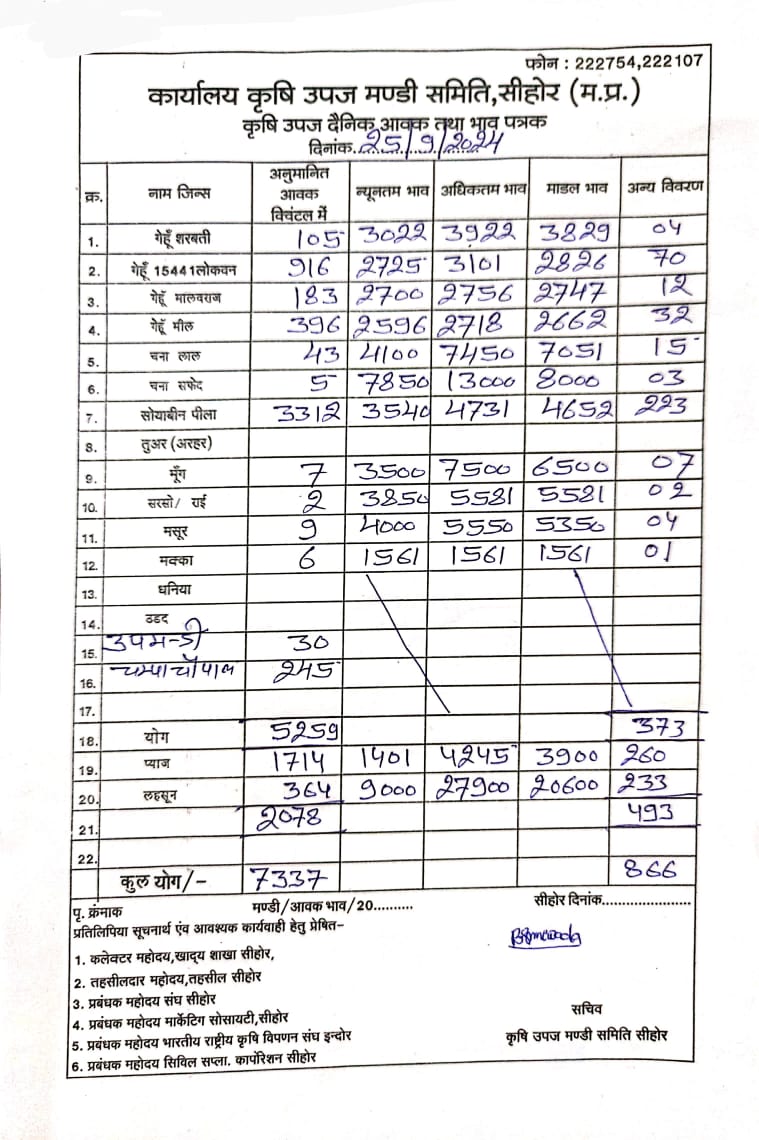 फोन : 222754,222107
कार्यालय कृषि उपज मण्डी समिति,सीहोर (म.प्र.)
कृषि उपज दैनिक आवक तथा भाव पत्रक
दिनांक. 25/9/2024
क्र. नाम जिन्स अनुमानित आवक क्विंटल में न्यूनतम भाव अधिकतम भाव माडल भाव अन्य विवरण
1. गेहूँ शरबती 105 3022 3922 3829 04
2. गेहूँ 15441लोकवन 916 2725 3101 2826 70
3. गेहूँ मालवराज 183 2700 2756 2747 12
4. गेहूँ मील 396 2596 2718 2662 32
5. चना लाल 43 4100 7450 7051 15
6. चना सफेद 5 7850 13000 8000 03
7. सोयाबीन पीला 3312 3540 4731 4652 223
8. तुअर (अरहर)
9. मूँग 7 3500 7500 6500 07
10. सरसो/ राई 2 3850 5581 5581 02
11. मसूर 9 4000 5550 5350 04
12. मक्का 6 1561 1561 1561 01
13. धनिया
14. उडद
15. उपमन्डी 30
16. चम्पाचौपाल 245
17.
18. योग 5259 373
19. प्याज 1714 1401 4245 3900 260
20. लहसून 364 9000 27900 20600 233
21. 2078 493
22.
कुल योग/- 7337 866
पृ. क्रंमाक मण्डी/आवक भाव/20.......... सीहोर दिनांक........................
प्रतिलिपिया सूचनार्थ एंव आवश्यक कार्यवाही हेतु प्रेषित-
1. कलेक्टर महोदय,खाद्य शाखा सीहोर,
2. तहसीलदार महोदय,तहसील सीहोर
3. प्रबंधक महोदय संघ सीहोर
4. प्रबंधक महोदय मार्केटिंग सोसायटी,सीहोर
5. प्रबंधक महोदय भारतीय राष्ट्रीय कृषि विपणन संघ इन्दोर
6. प्रबंधक महोदय सिविल सप्ला. कार्पोरेशन सीहोर
सचिव
कृषि उपज मण्डी समिति सीहोर